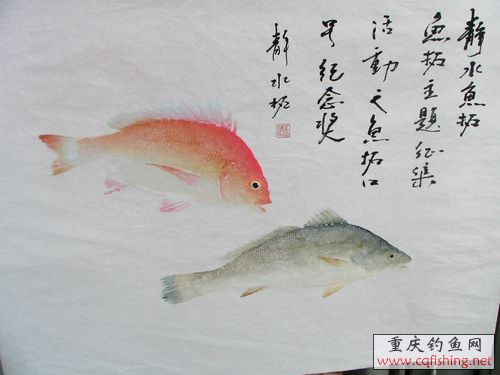 静水魚拓
魚拓主題征集
活動之魚拓口
号纪念奖
静水拓
重庆钓鱼网
www.cqfishing.net